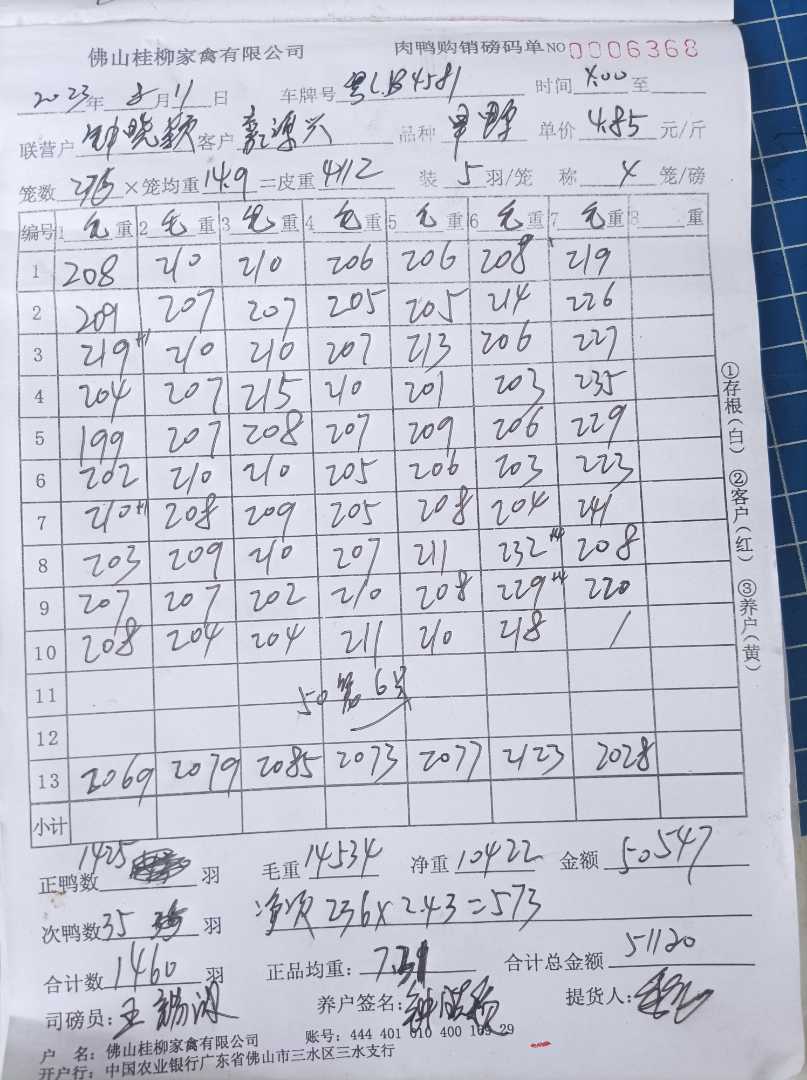 佛山桂柳家禽有限公司 肉鸭购销磅码单 NO 0006368
2023年 月 11 日 车牌号 粤L.B4581 时间 4:00 至
联营户 钟晓颖 客户 源兴 品种 单价 4.85 元/斤
笼数 276 ×笼均重 14.9 =皮重 4112 装 5 羽/笼 称 4 笼/磅
编号 1 毛 重 2 毛 重 3 毛 重 4 毛 重 5 毛 重 6 毛 重 7 毛 重 8 重
1 208 210 210 206 206 208 219
2 209 207 207 205 205 214 226
3 219+1 210 210 207 213 206 227
4 204 207 215 210 201 203 235
5 199 207 208 207 209 206 229
6 202 210 210 205 206 203 223
7 210+1 208 209 205 208 204 241
8 203 209 210 207 211 232+4 208
9 207 207 202 210 208 229+4 220
10 208 204 204 211 210 218 /
11 50 笼 6
12
13 2069 2079 2085 2073 2077 2123 2028
小计
正鸭数 1425 羽 毛重 14534 净重 10422 金额 50547
次鸭数 35 羽 净次 236×2.43=573
合计数 1460 羽 正品均重: 7.31 合计总金额 51120
司磅员: 王 养户签名: 钟 提货人:
户 名: 佛山桂柳家禽有限公司 账号: 444 401 010 400 169 29
开户行: 中国农业银行广东省佛山市三水区三水支行
①存根(白) ②客户(红) ③养户(黄)